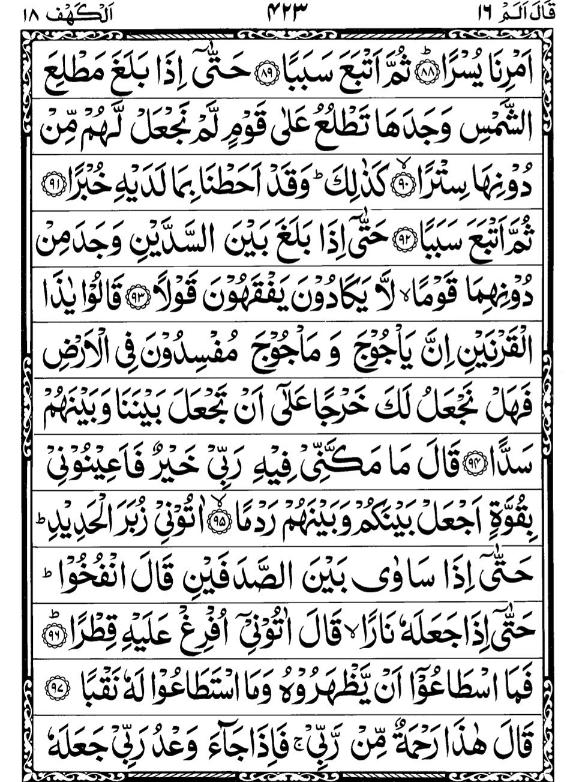 قَالَ اَلَمْ ١٦ ٤٢٣ اَلْكَهْف ١٨
اَمْرِنَا يُسْرًا ؕ﴿٨٨﴾ ثُمَّ اَتْبَعَ سَبَبًا ﴿٨٩﴾ حَتّٰۤى اِذَا بَلَغَ مَطْلِعَ
الشَّمْسِ وَجَدَهَا تَطْلُعُ عَلٰى قَوْمٍ لَّمْ نَجْعَلْ لَّهُمْ مِّنْ
دُوْنِهَا سِتْرًا ۙ﴿٩٠﴾ كَذٰلِكَ ؕ وَقَدْ اَحَطْنَا بِمَا لَدَيْهِ خُبْرًا ﴿٩١﴾
ثُمَّ اَتْبَعَ سَبَبًا ﴿٩٢﴾ حَتّٰۤى اِذَا بَلَغَ بَيْنَ السَّدَّيْنِ وَجَدَ مِنْ
دُوْنِهِمَا قَوْمًا ۙ لَّا يَكَادُوْنَ يَفْقَهُوْنَ قَوْلًا ﴿٩٣﴾ قَالُوْا يٰذَا
الْقَرْنَيْنِ اِنَّ يَاْجُوْجَ وَ مَاْجُوْجَ مُفْسِدُوْنَ فِى الْاَرْضِ
فَهَلْ نَجْعَلُ لَكَ خَرْجًا عَلٰۤى اَنْ تَجْعَلَ بَيْنَنَا وَبَيْنَهُمْ
سَدًّا ﴿٩٤﴾ قَالَ مَا مَكَّنِّىْ فِيْهِ رَبِّىْ خَيْرٌ فَاَعِيْنُوْنِىْ
بِقُوَّةٍ اَجْعَلْ بَيْنَكُمْ وَبَيْنَهُمْ رَدْمًا ۙ﴿٩٥﴾ اٰتُوْنِىْ زُبَرَ الْحَدِيْدِ ؕ
حَتّٰۤى اِذَا سَاوٰى بَيْنَ الصَّدَفَيْنِ قَالَ انْفُخُوْا ؕ
حَتّٰۤى اِذَا جَعَلَهٗ نَارًا ۙ قَالَ اٰتُوْنِىْۤ اُفْرِغْ عَلَيْهِ قِطْرًا ؕ﴿٩٦﴾
فَمَا اسْطَاعُوْۤا اَنْ يَّظْهَرُوْهُ وَمَا اسْتَطَاعُوْا لَهٗ نَقْبًا ﴿٩٧﴾
قَالَ هٰذَا رَحْمَةٌ مِّنْ رَّبِّىْ ۚ فَاِذَا جَآءَ وَعْدُ رَبِّىْ جَعَلَهٗ